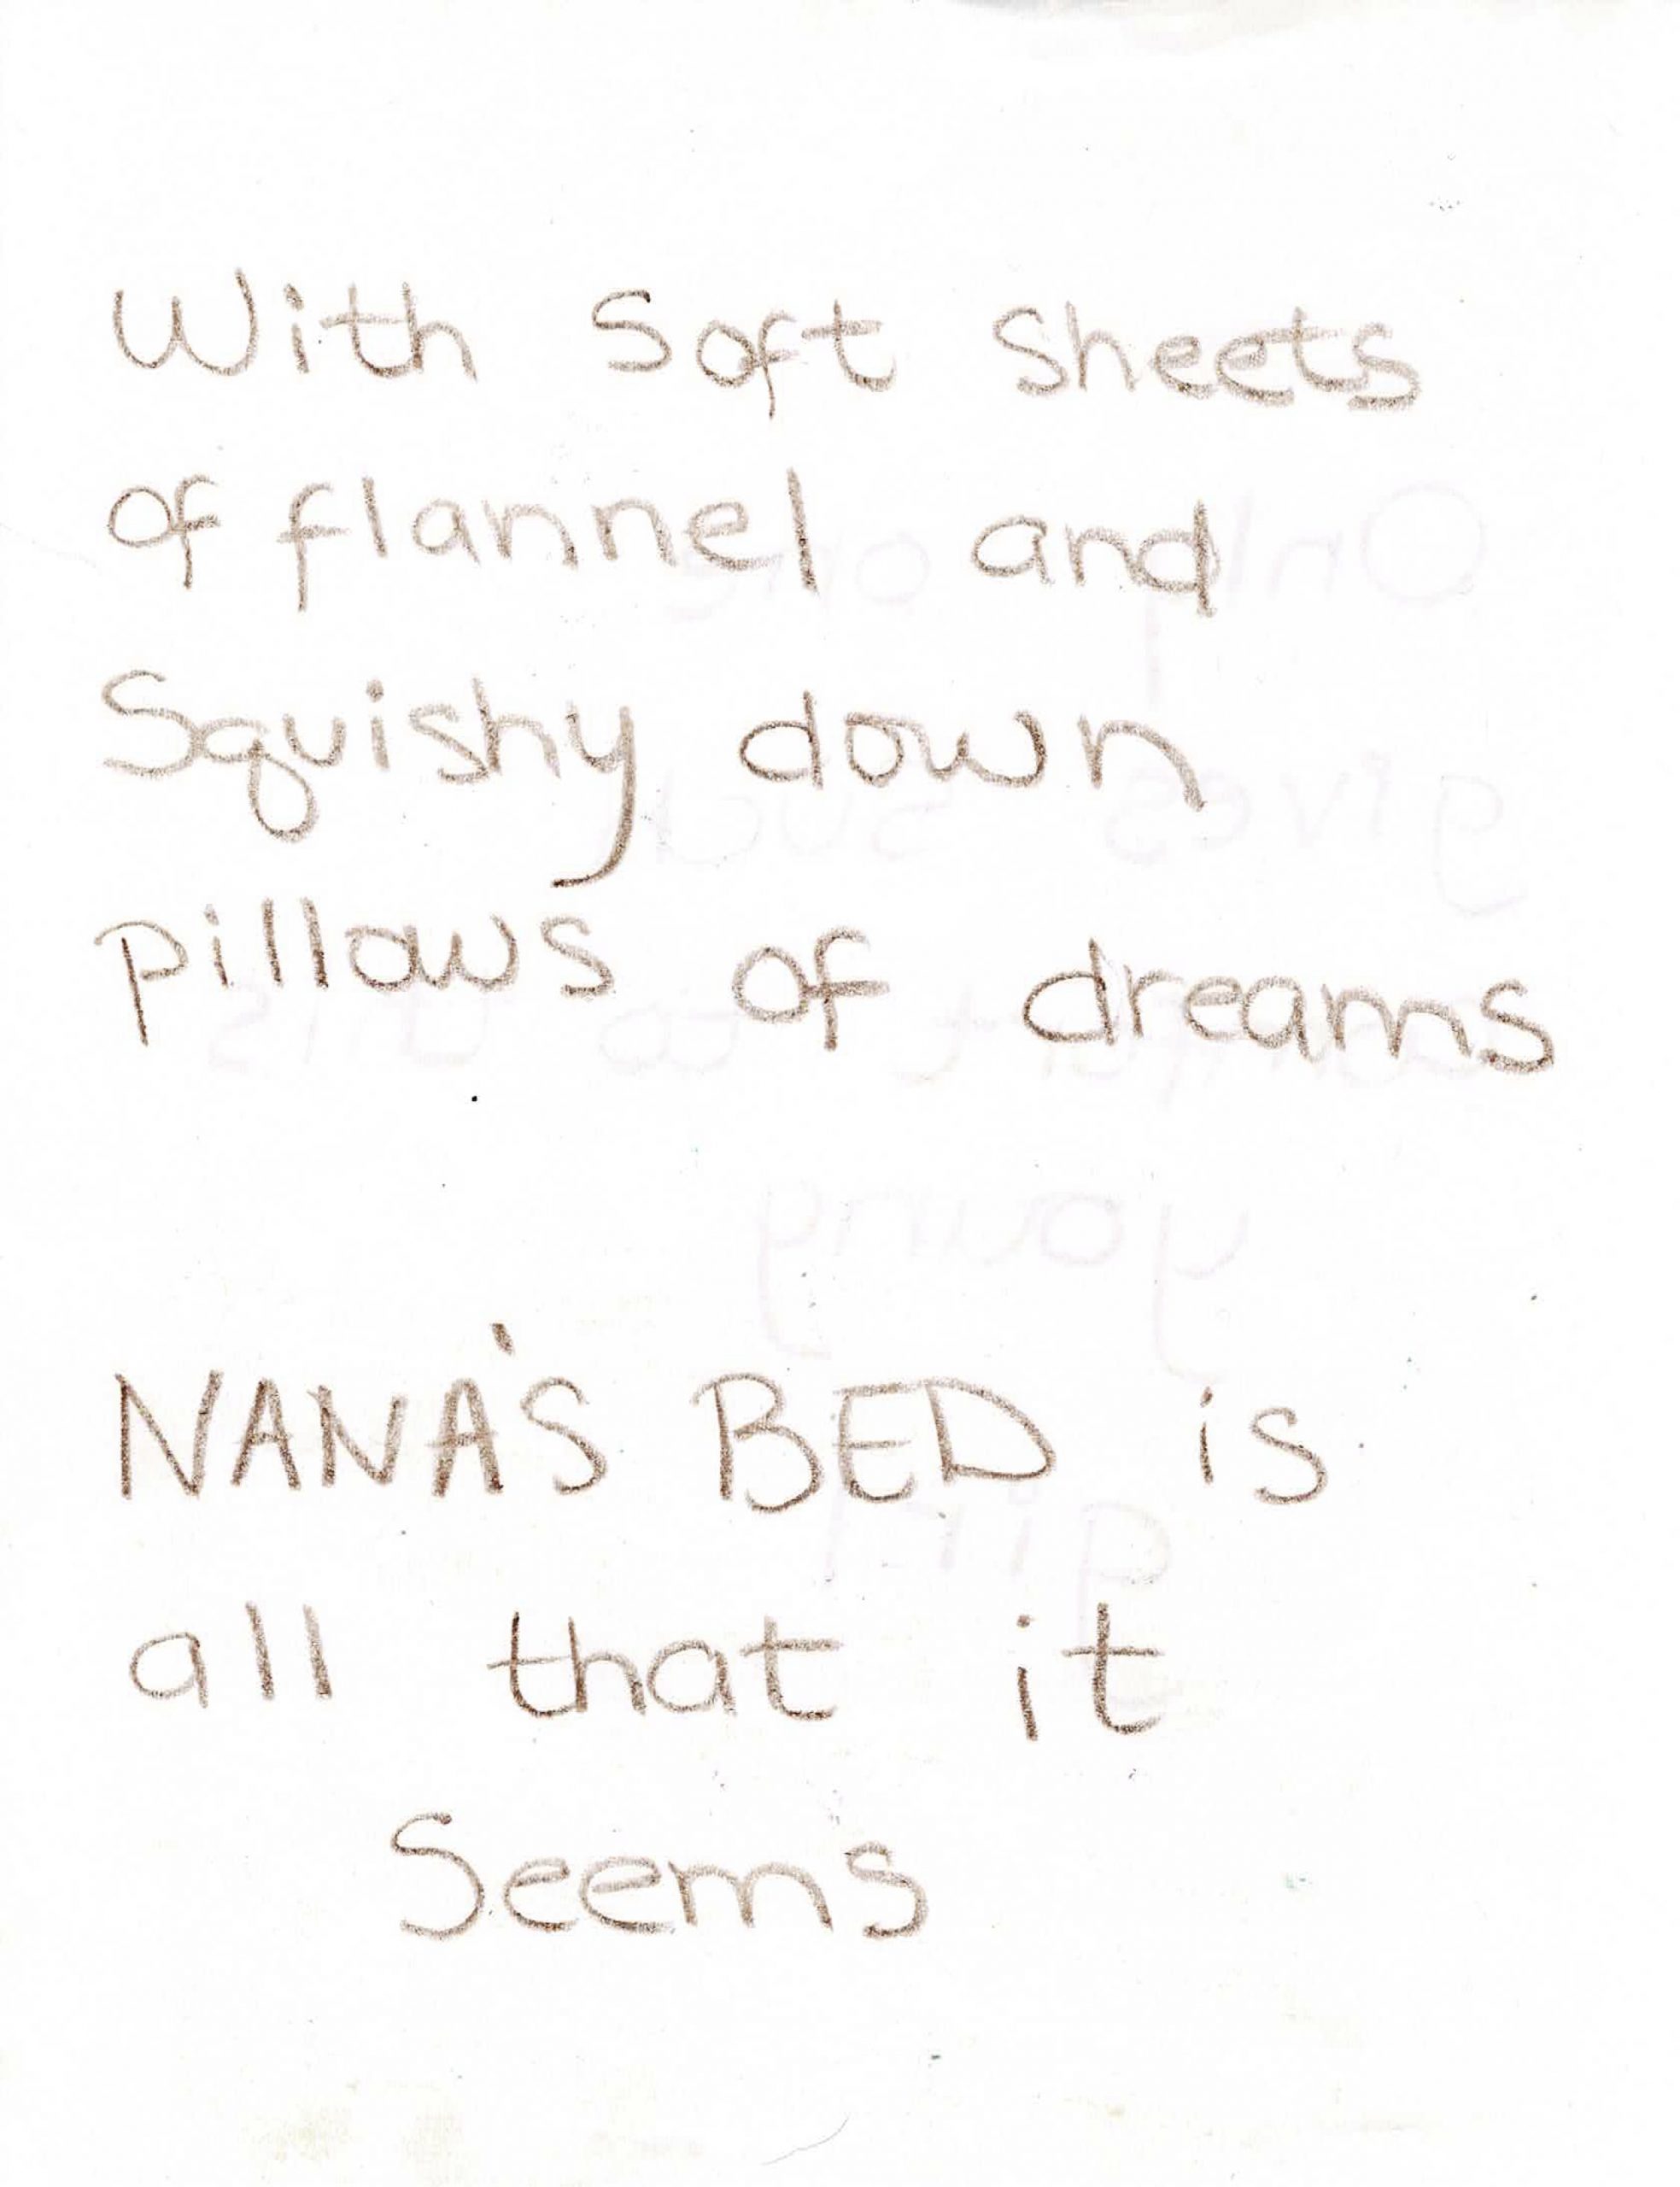 With Soft Sheets
of flannel and
Squishy down
pillows of dreams
NANA'S BED is
all that it
Seems